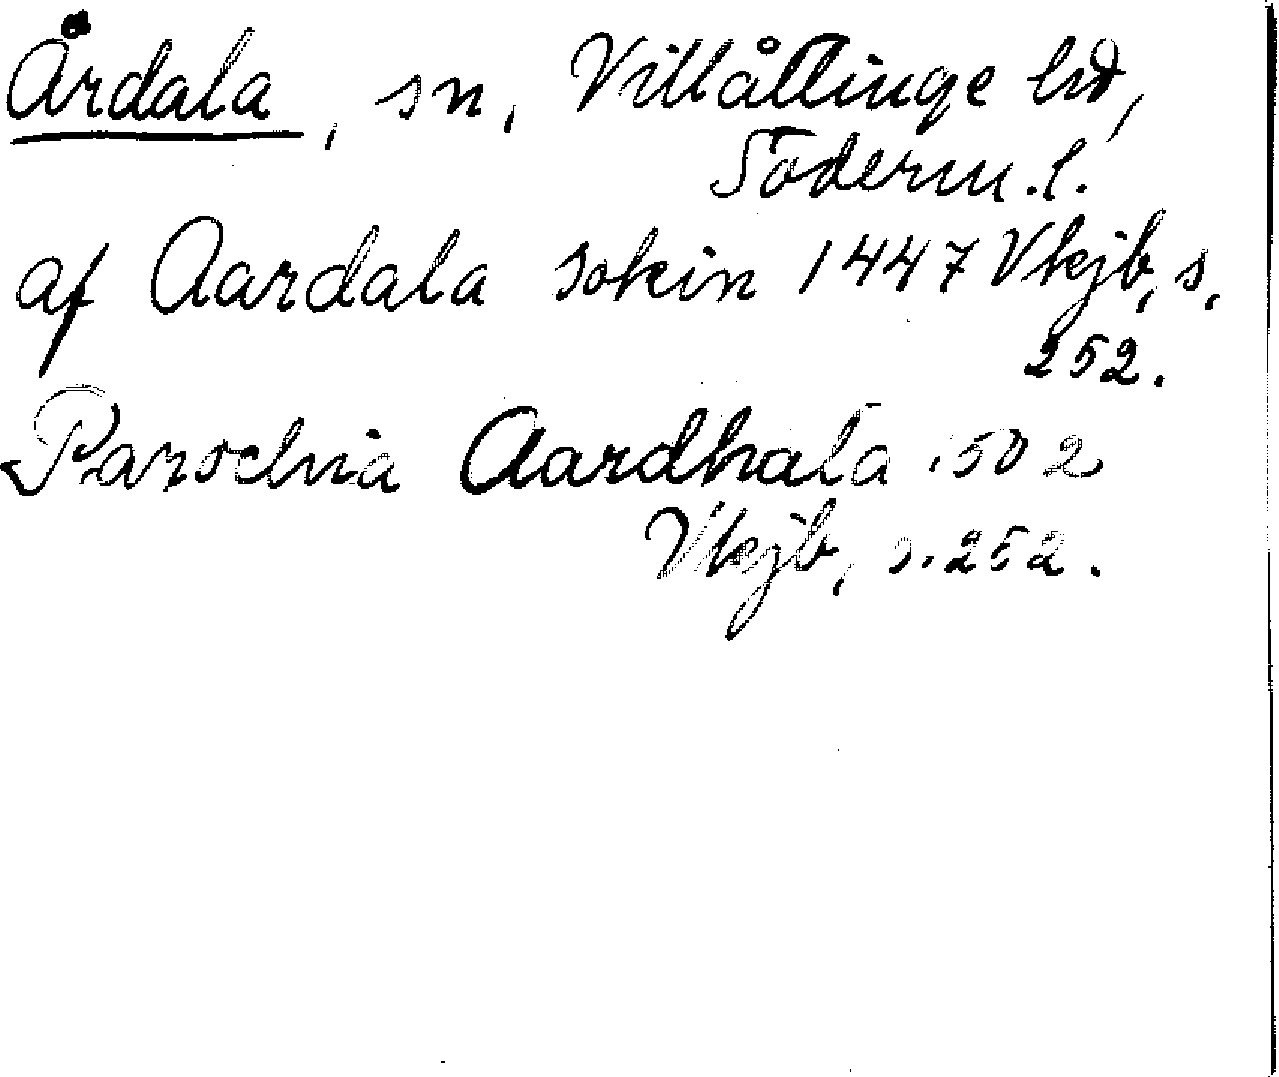 Årdala, sn, Villåttinge hd,
Söderm.l.
af Aardala sokin 1447 Vkjb, s.
252.
Parochia Aardhala 1502
Vkjb, s. 252.